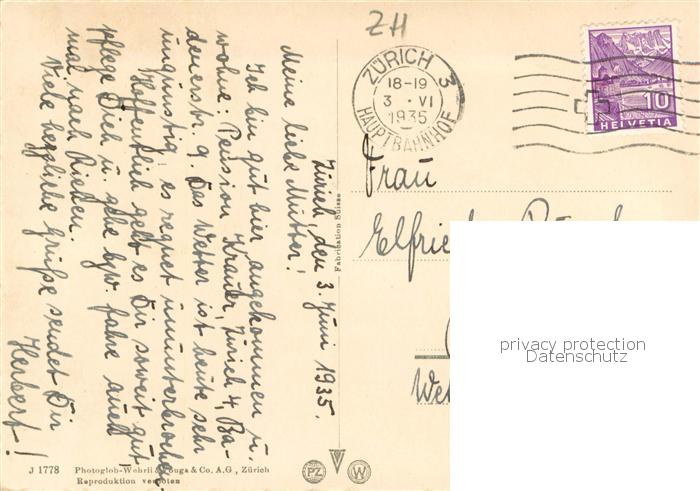 ZH
ZÜRICH 3
18-19
3. VI
1935
HAUPTBAHNHOF
10
HELVETIA
Zürich, den 3. Juni 1935.
Meine liebe Mutter!
Ich bin gut hier angekommen u.
wohne: Pension Krauer, Zürich 4, Ba-
denerstr. 9. Das Wetter ist heute sehr
ungünstig, es regnet ununterbrochen.
Hoffentlich geht es Dir soweit gut,
pflege Dich u. gehe bzw. fahre auch
mal nach Riehen.
Viele herzliche Grüße sendet Dir
Herbert!
Frau
Fabrication Suisse
privacy protection
Datenschutz
J 1778 Photoglob-Wehrli & Vouga & Co. A.G., Zürich
Reproduktion verboten
PZ
W